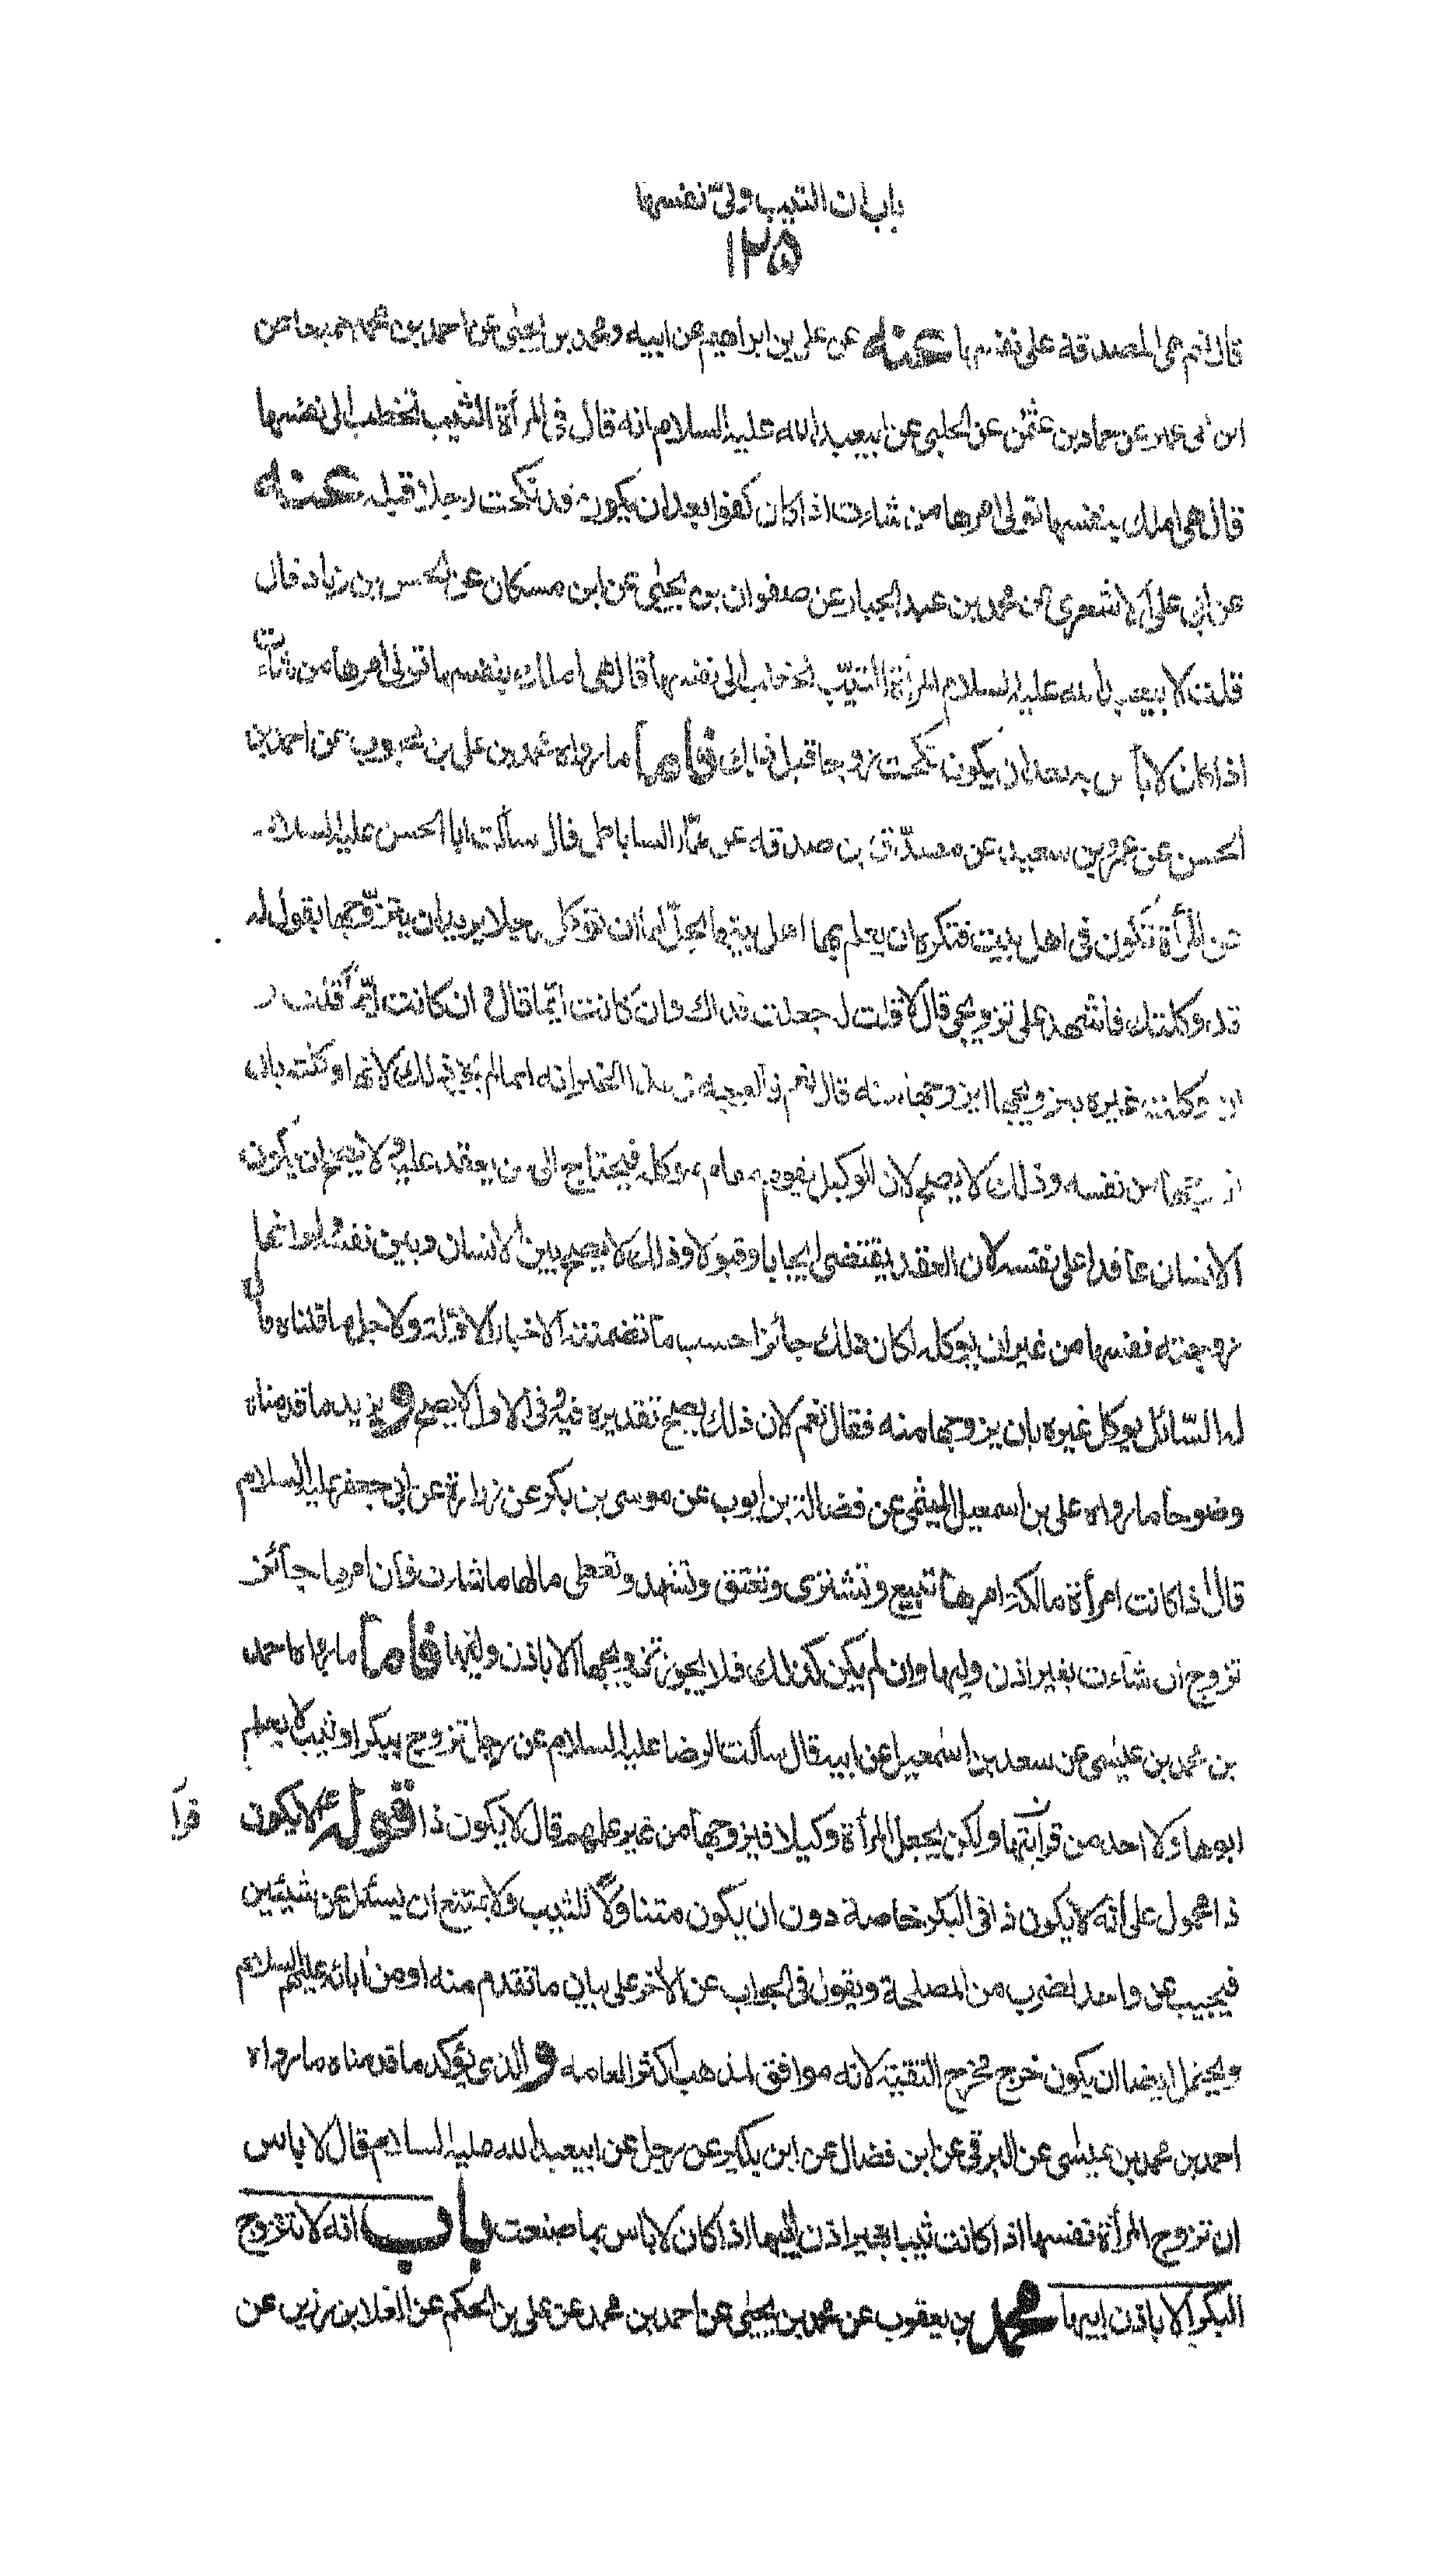 باب ان الثيب ولىّ نفسها
١٢٥
قال نعم هى المصدقة على نفسها عنه عن على بن ابراهيم عن ابيه ومحمد بن يحيى عن احمد بن محمد جميعا عن
ابن ابى عمير عن حماد بن عثمن عن الحلبى عن ابيعبد الله عليه السلام انه قال فى المرأة الثيب تخطب الى نفسها
قال هى املك بنفسها تولى امرها من شاءت اذا كان كفوا بعد ان يكون قد نكحت رجلا قبله عنه
عن ابى على الاشعرى عن محمد بن عبد الجبار عن صفوان بن يحيى عن ابن مسكان عن الحسن بن زياد قال
قلت لابيعبد الله عليه السلام المرأة الثيّب تخطب الى نفسها قال هى املك بنفسها تولى امرها من شاءت
اذا كان لا بأس به بعد ان يكون نكحت زوجا قبل ذلك فاما ما رواه محمد بن على بن محبوب عن احمد بن
الحسن عن عمرو بن سعيد عن مصدّق بن صدقه عن عمّار الساباطى قال سألت ابا الحسن عليه السلام
عن المرأة تكون فى اهل بيت فتكره ان يعلم بها اهل بيتها يحلّ لها ان توكل رجلا يريد ان يتزوّجها يقول له
قد وكلتك فاشهد على تزويجى قال لا قلت له جعلت فداك وان كانت ايّما قال وان كانت ايّما قلت
وكلت غيره بتزويجها ايزوجها منه قال نعم فالوجه فى هذا الخبر انه انما لم يجز ذلك لانها وكلته بان
يتزوجها من نفسه وذلك لا يصح لان الوكيل يقوم مقام موكله فيحتاج الى من يعقد عليه ولا يصح ان يكون
الانسان عاقدا على نفسه لان العقد يقتضى ايجابا وقبولا وذلك لا يصح بين الانسان وبين نفسه ولو انها
زوجته نفسها من غير ان يوكله لكان ذلك جائزا حسب ما تضمنته الاخبار الاوّلة ولاجل ما قلناه قال
له السّائل يوكل غيره بان يزوجها منه فقال نعم لان ذلك يصح تقديره فيه وفى الاول لا يصح ويزيد ما قدمناه
وضوحا ما رواه على بن اسمعيل الميثمى عن فضالة بن ايوب عن موسى بن بكر عن زرارة عن ابى جعفر عليه السلام
قال اذا كانت امرأة مالكة امرها تبيع وتشترى وتعتق وتشهد وتعطى مالها ما شاءت فان امرها جآئز
تزوج ان شآءت بغير اذن وليها وان لم يكن كذلك فلا يجوز تزويجها الا باذن وليها فاما ما رواه احمد
بن محمد بن عيسى عن سعد بن اسمعيل عن ابيه قال سألت الرضا عليه السلام عن رجل تزوج ببكر او ثيب لا يعلم
ابوها ولا احد من قرابتها ولكن يجعل المرأة وكيلا فيزوجها من غير علمهم قال لا يكون ذا قوله ع لا يكون
ذا محمول على انه لا يكون ذا فى البكر خاصة دون ان يكون متناولا للثيب ولا يمتنع ان يسئل عن شيئين
فيجيب عن واحد لضرب من المصلحة ويقول فى الجواب عن الآخر على بيان ما تقدم منه او من آبائه عليهم السلام
ويحتمل ايضا ان يكون خرج مخرج التقيّة لانه موافق لمذهب اكثر العامه والذى يؤكد ما قدمناه ما رواه
احمد بن محمد بن عيسى عن البرقى عن ابن فضال عن ابن بكير عن رجل عن ابيعبد الله عليه السلام قال لا باس
ان تزوج المرأة نفسها اذا كانت ثيبا بغير اذن ابيها اذا كان لا باس بما صنعت باب انه لا تتزوج
البكر الا باذن ابيها محمد بن يعقوب عن محمد بن يحيى عن احمد بن محمد عن على بن الحكم عن العلا بن رزين عن